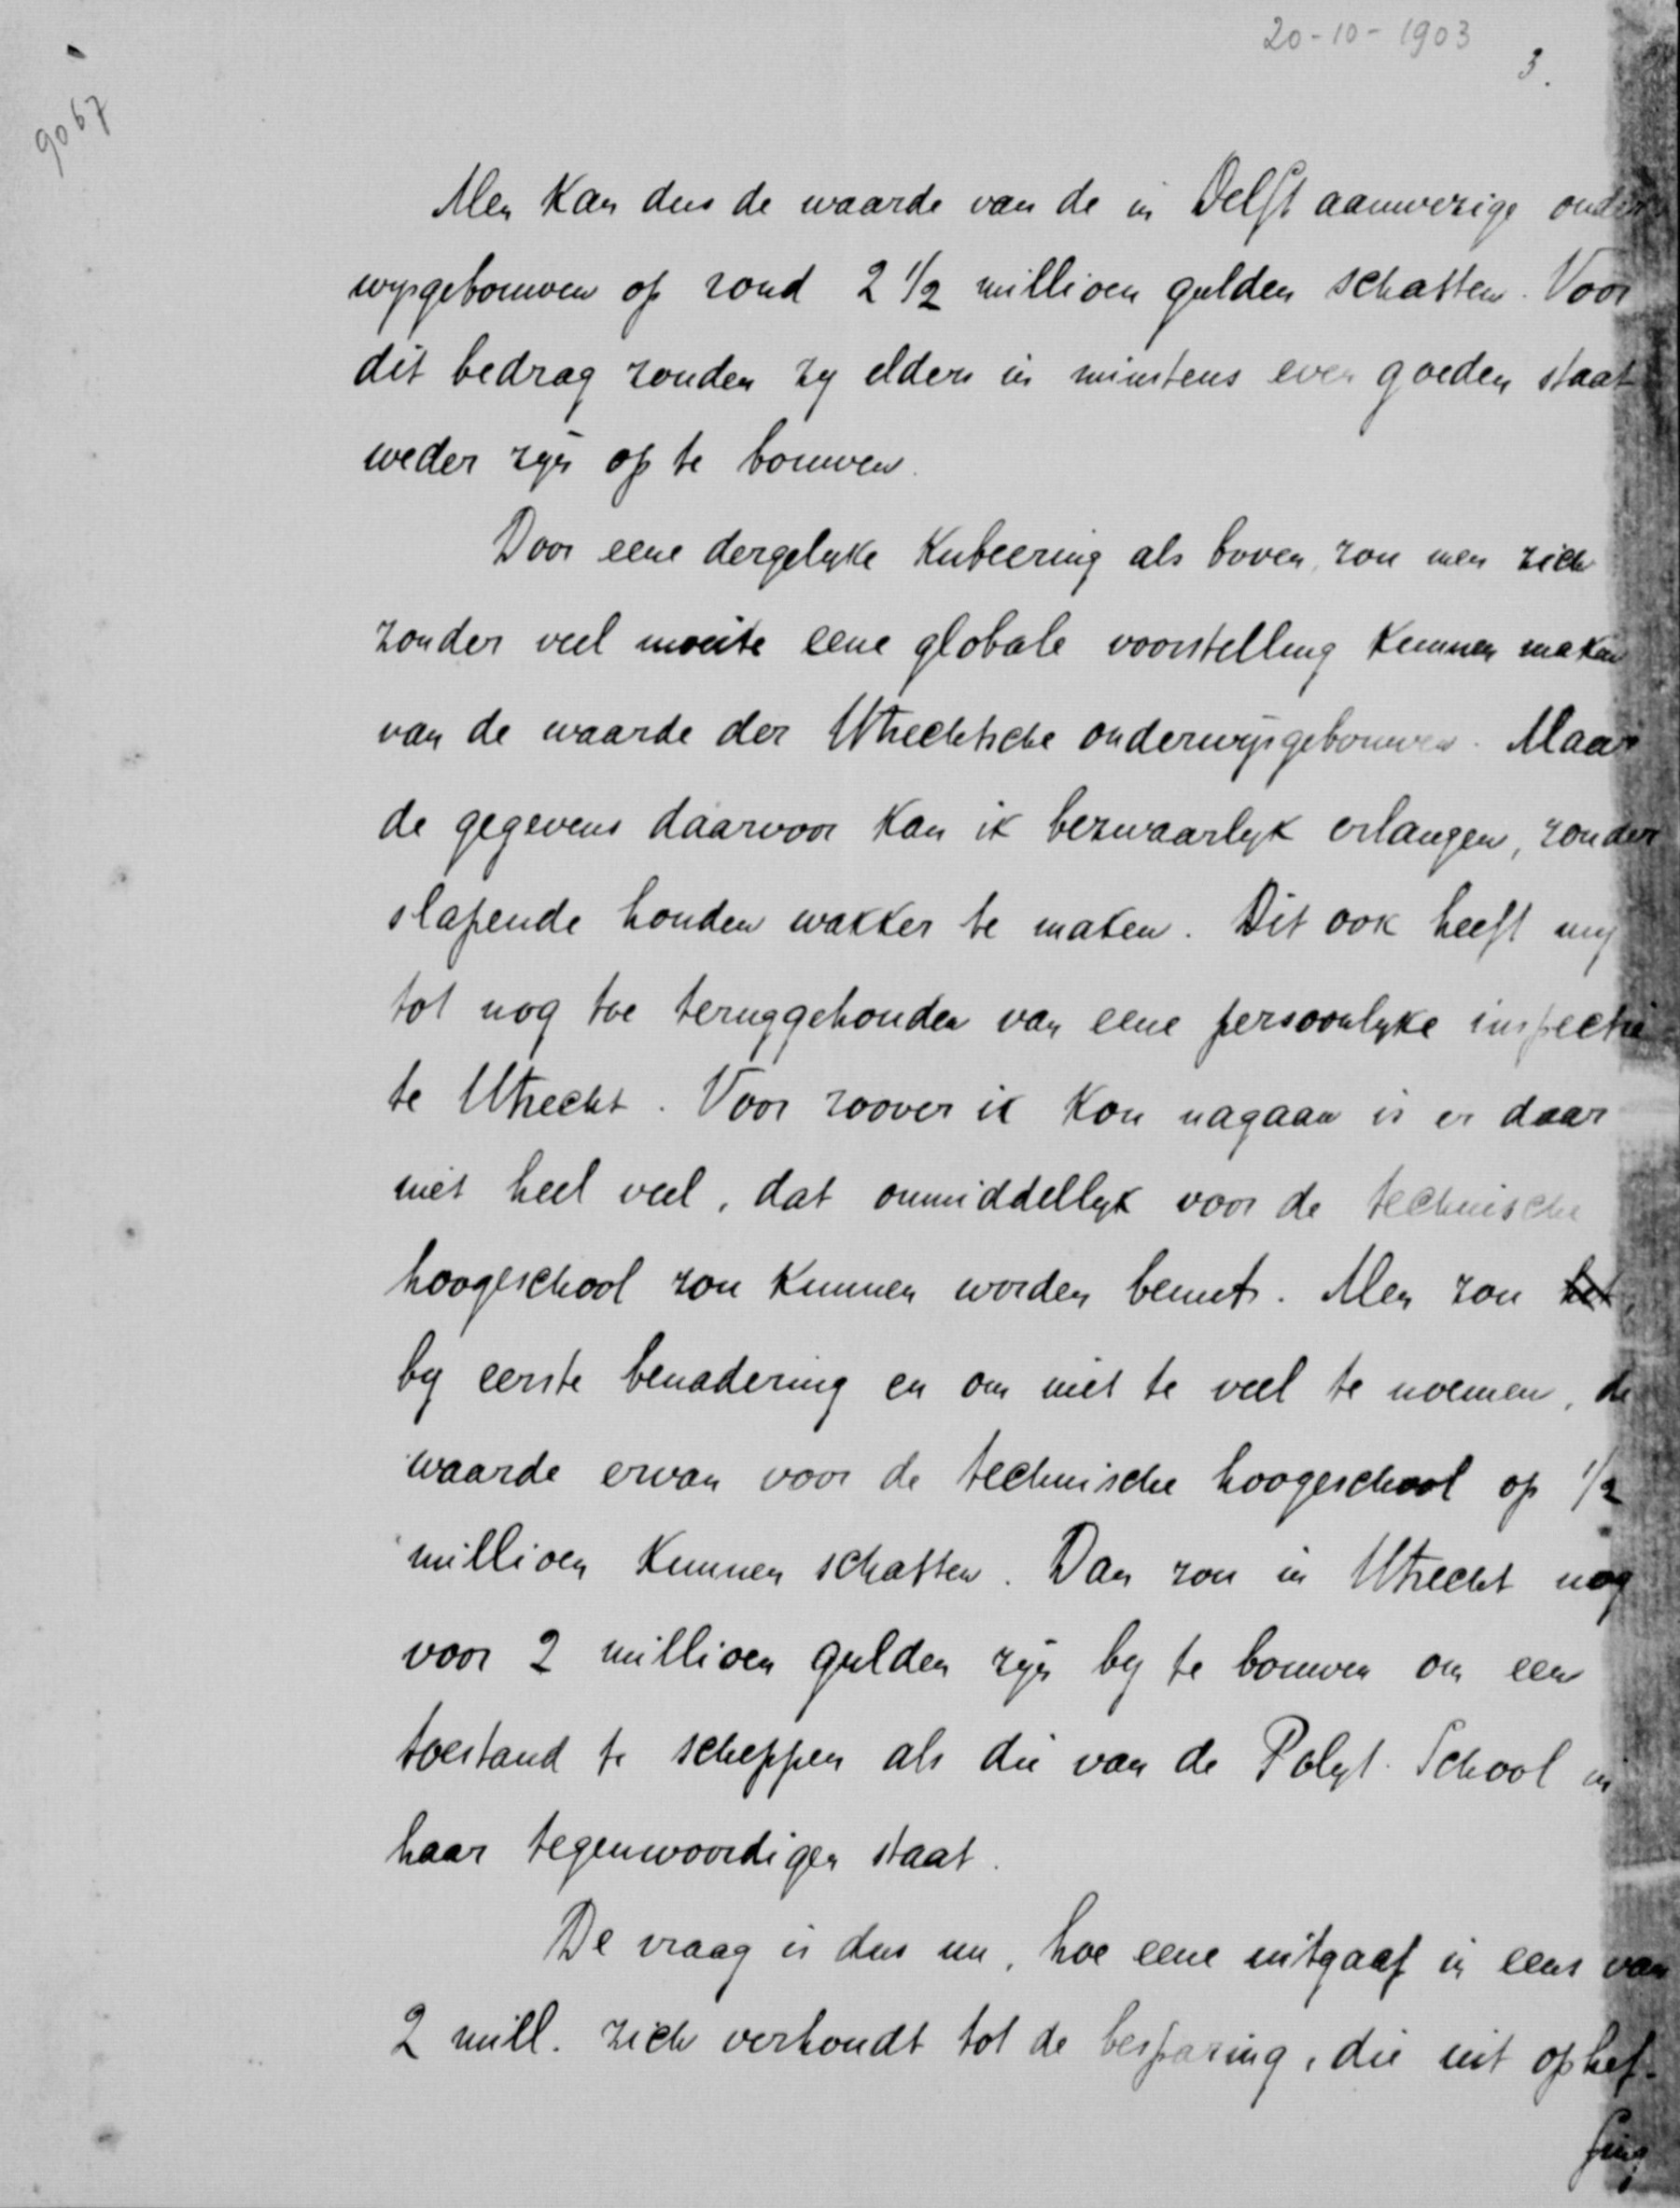 20-10-1903
3.
9067
Men kan dus de waarde van de in Delft aanwezige onder
wijsgebouwen op rond 2 1/2 millioen gulden schatten. Voor
dit bedrag zouden zij elders in minstens even goeden staat
weder zijn op te bouwen.
Door eene dergelijke kubeering als boven, zou men zich
zonder veel moeite eene globale voorstelling kunnen maken
van de waarde der Utrechtsche onderwijsgebouwen. Maar
de gegevens daarvoor kan ik bezwaarlijk erlangen, zonder
slapende honden wakker te maken. Dit ook heeft mij
tot nog toe teruggehouden van eene persoonlijke inspectie
te Utrecht. Voor zoover ik kon nagaan is er daar
niet heel veel, dat onmiddellijk voor de technische
hoogeschool zou kunnen worden benut. Men zou het,
bij eerste benadering en om niet te veel te noemen, de
waarde ervan voor de technische hoogeschool op 1/2
millioen kunnen schatten. Dan zou in Utrecht nog
voor 2 millioen gulden zijn bij te bouwen om een
toestand te scheppen als die van de Polyt. School in
haar tegenwoordigen staat.
De vraag is dus nu, hoe eene uitgaaf in eens van
2 mill. zich verhoudt tot de besparing, die uit ophef-
fing